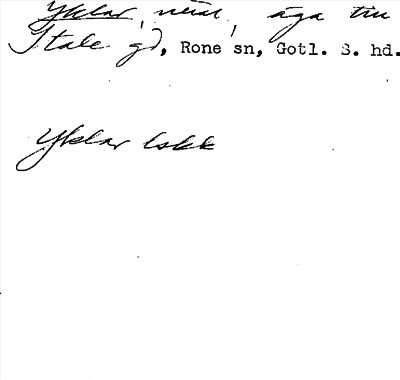 Yklar, näset, äga till
Stale gd, Rone sn, Gotl. S. hd.
Yklar lskk